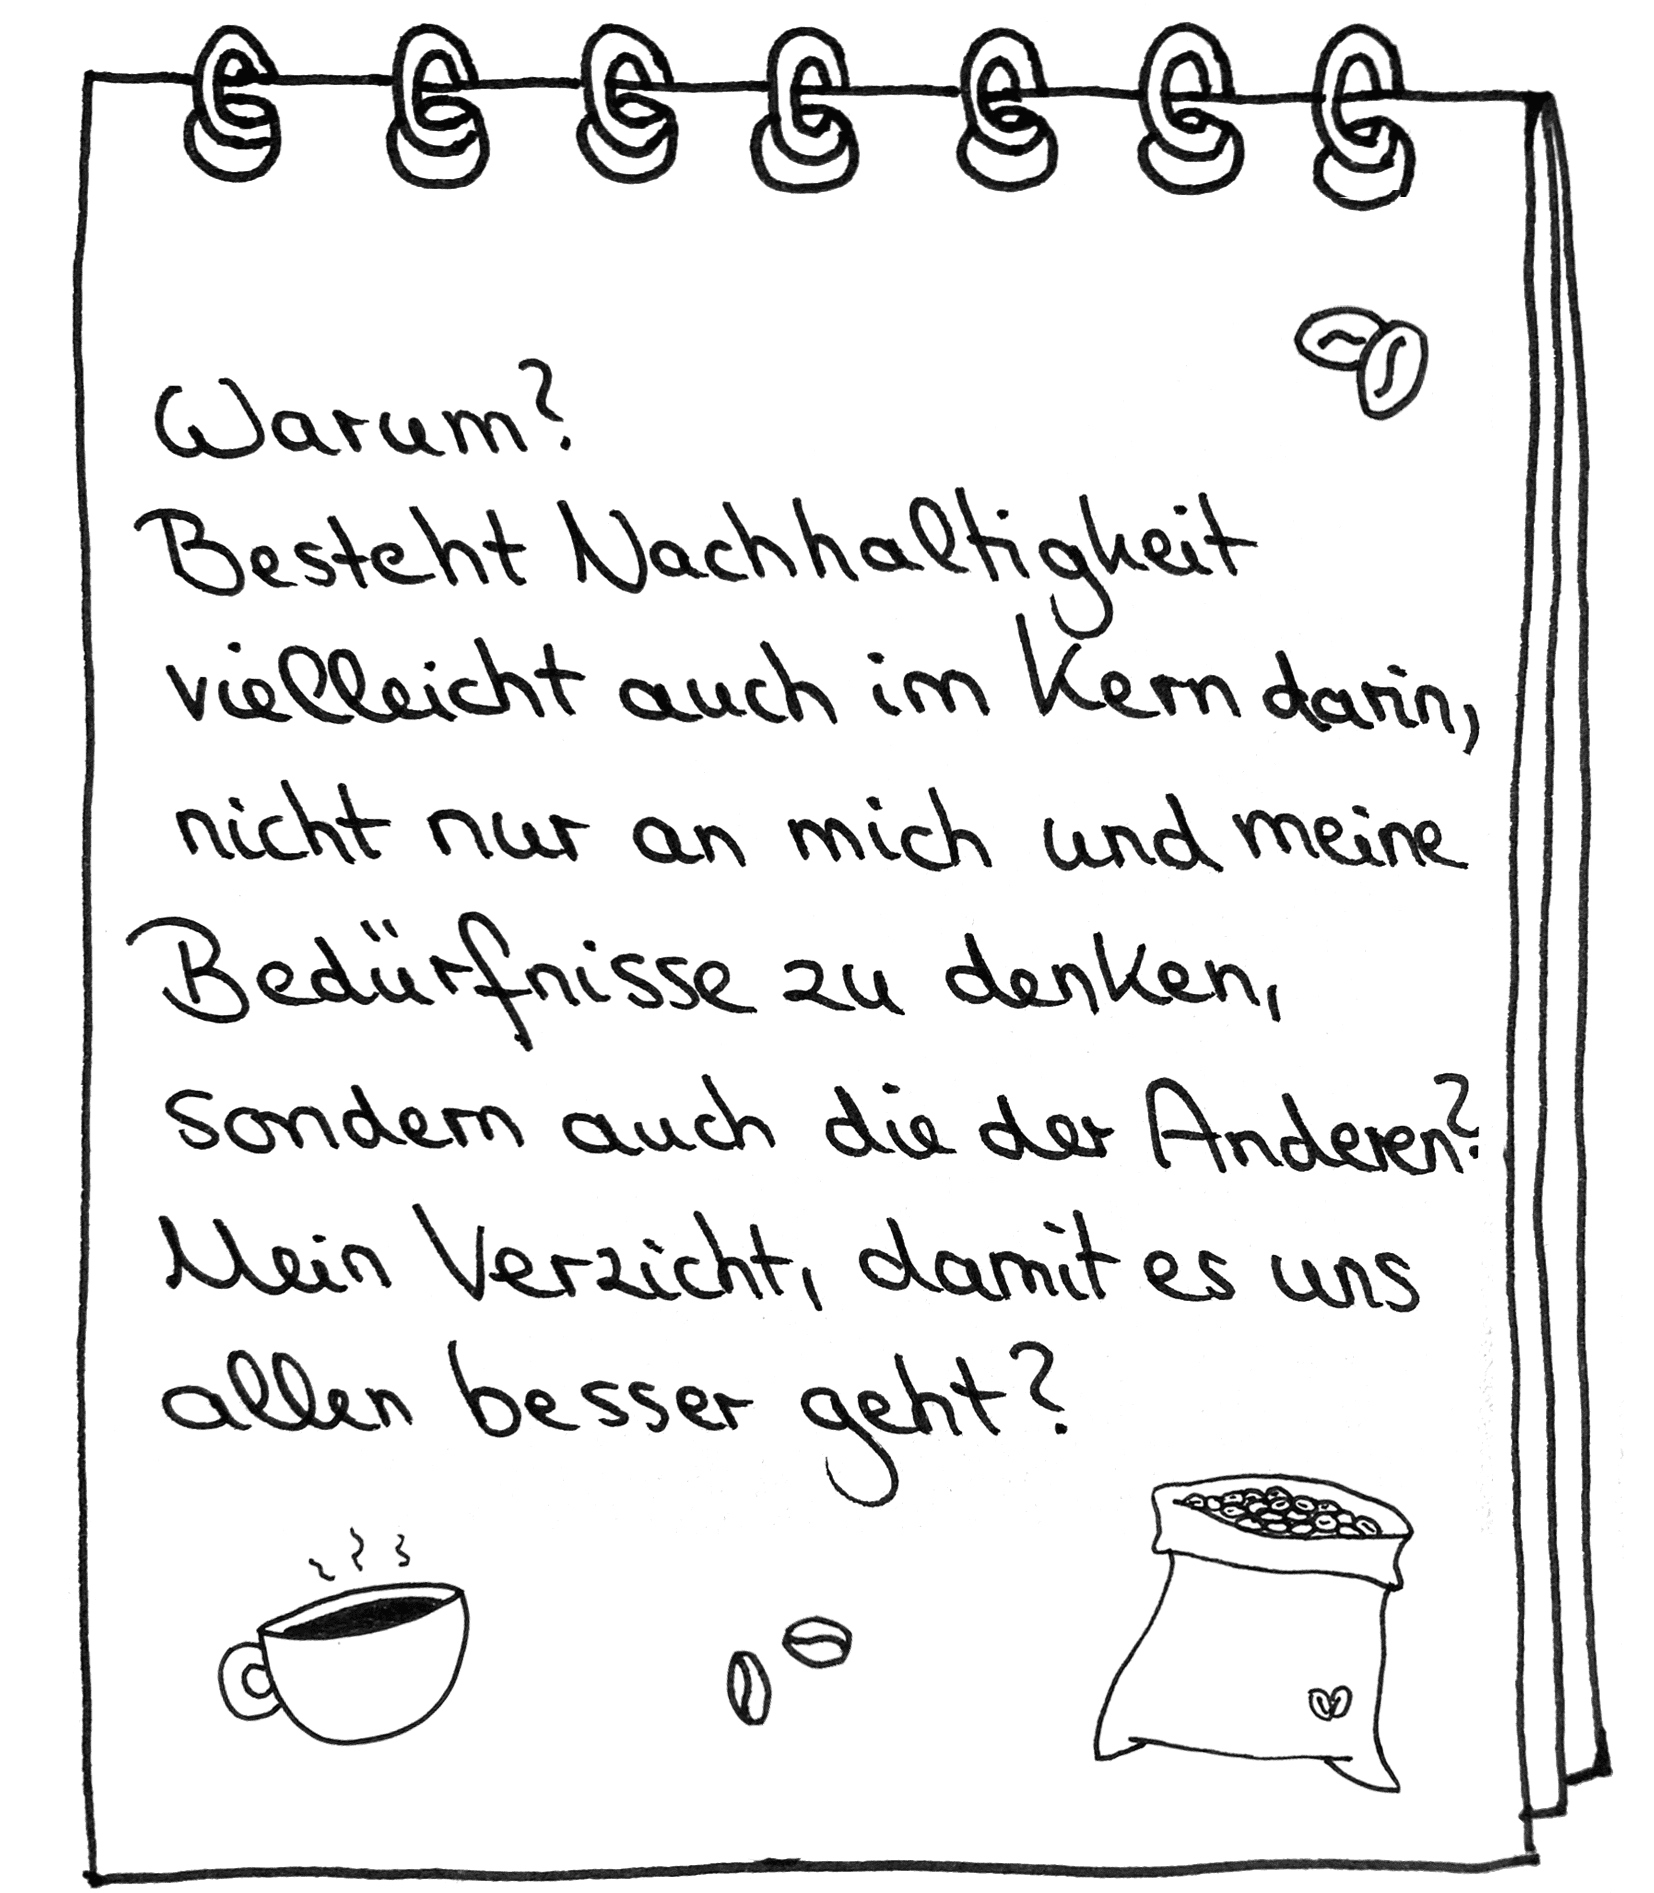 Warum?
Besteht Nachhaltigkeit
vielleicht auch im Kern darin,
nicht nur an mich und meine
Bedürfnisse zu denken,
sondern auch die der Anderen?
Mein Verzicht, damit es uns
allen besser geht?